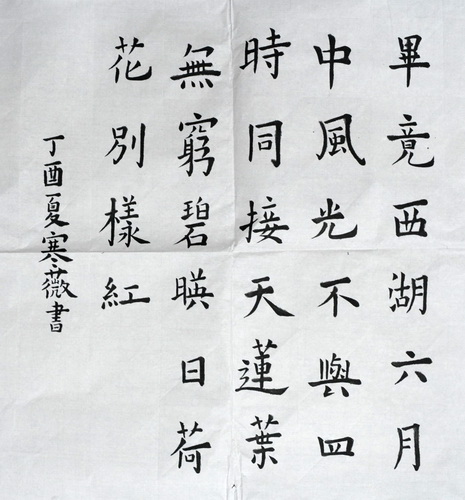 畢竟西湖六月
中風光不與四
時同接天蓮葉
無窮碧暎日荷
花別樣紅
丁酉夏寒薇書